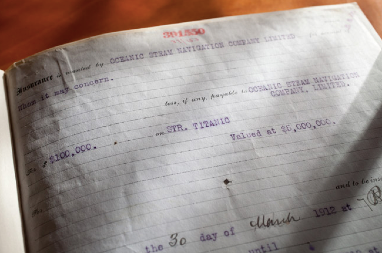 301550
Assurance is wanted by OCEANIC STEAM NAVIGATION COMPANY LIMITED
Whom it may concern.
loss, if any, payable to OCEANIC STEAM NAVIGATION
COMPANY, LIMITED.
$100,000. on STR. TITANIC
Valued at $5,000,000.
and to be
the 30 day of March 1912 at
until